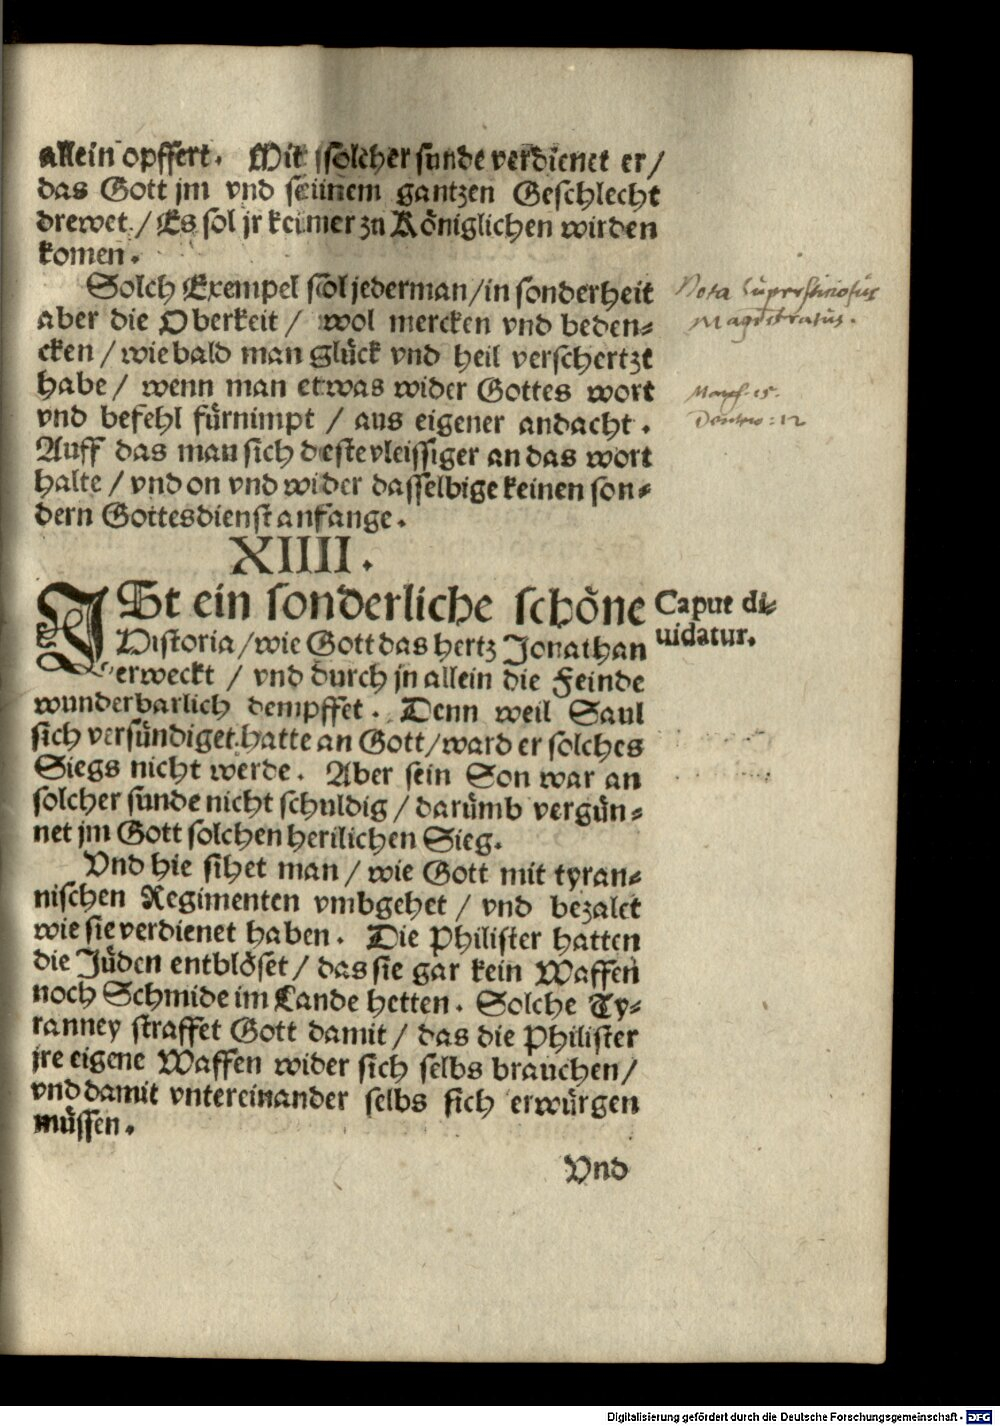 allein opffert. Mit solcher sunde verdienet er/
das Gott jm vnd seinem gantzen Geschlecht
drewet / Es sol jr keimer zu Königlichen wirden
komen.
Solch Exempel sol jederman / in sonderheit
aber die Oberkeit / wol mercken vnd beden-
cken / wie bald man glück vnd heil verschertzt
habe / wenn man etwas wider Gottes wort
vnd befehl fürnimpt / aus eigener andacht.
Auff das man sich deste vleissiger an das wort
halte / vnd on vnd wider dasselbige keinen son-
dern Gottesdienst anfange.
Nota superstitiosus
Magistratus.
Deutro: 12
XIIII.
ISt ein sonderliche schöne
Historia / wie Gott das hertz Jonathan
erweckt / vnd durch jn allein die Feinde
wunderbarlich dempffet. Denn weil Saul
sich versündiget hatte an Gott / ward er solches
Siegs nicht werde. Aber sein Son war an
solcher sunde nicht schuldig / darümb vergün-
net jm Gott solchen herrlichen Sieg.
Caput di-
uidatur.
Vnd hie sihet man / wie Gott mit tyran-
nischen Regimenten vmbgehet / vnd bezalet
wie sie verdienet haben. Die Philister hatten
die Jüden entblöset / das sie gar kein Waffen
noch Schmide im Lande hetten. Solche Ty-
ranney straffet Gott damit / das die Philister
jre eigene Waffen wider sich selbs brauchen /
vnd damit vntereinander selbs sich erwürgen
müssen.
Vnd
Digitalisierung gefördert durch die Deutsche Forschungsgemeinschaft - DFG